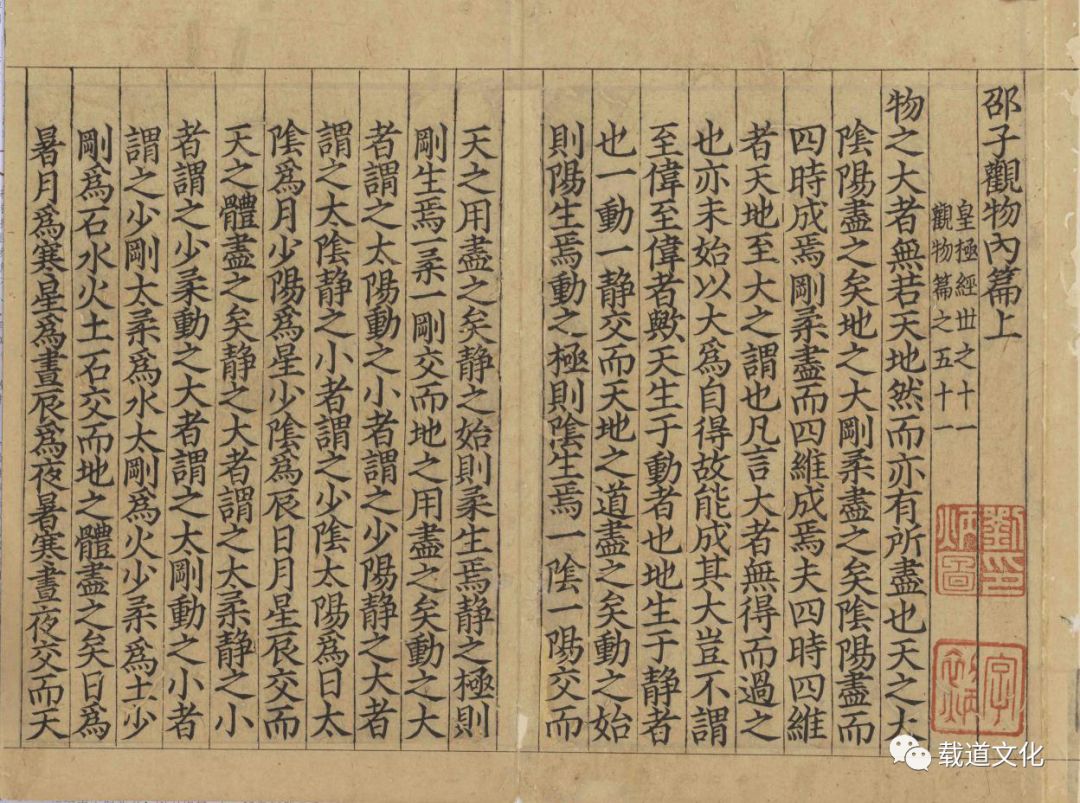 邵子觀物內篇上
皇極經世之十一
觀物篇之五十一
物之大者無若天地然而亦有所盡也天之大
陰陽盡之矣地之大剛柔盡之矣陰陽盡而
四時成焉剛柔盡而四維成焉夫四時四維
者天地至大之謂也凡言大者無得而過之
也亦未始以大爲自得故能成其大豈不謂
至偉至偉者歟天生于動者也地生于静者
也一動一静交而天地之道盡之矣動之始
則陽生焉動之極則陰生焉一陰一陽交而
天之用盡之矣静之始則柔生焉静之極則
剛生焉一柔一剛交而地之用盡之矣動之大
者謂之太陽動之小者謂之少陽静之大者
謂之太陰静之小者謂之少陰太陽爲日太
陰爲月少陽爲星少陰爲辰日月星辰交而
天之體盡之矣静之大者謂之太柔静之小
者謂之少柔動之大者謂之太剛動之小者
謂之少剛太柔爲水太剛爲火少柔爲土少
剛爲石水火土石交而地之體盡之矣日爲
暑月爲寒星爲晝辰爲夜暑寒晝夜交而天
载道文化